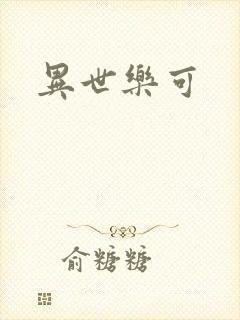 異世樂可
俞糖糖